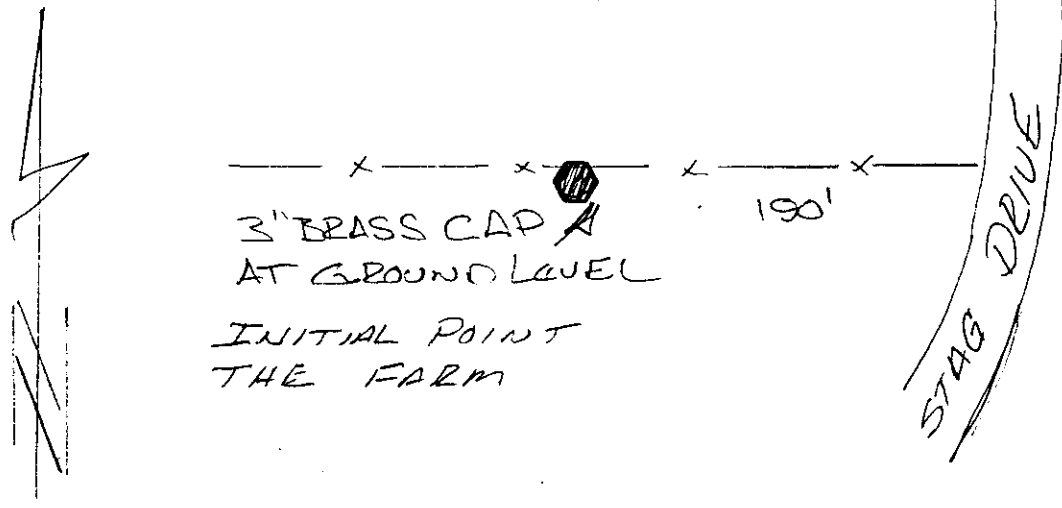 190'
3" BRASS CAP
AT GROUND LEVEL
INITIAL POINT
THE FARM
STAG DRIVE
N